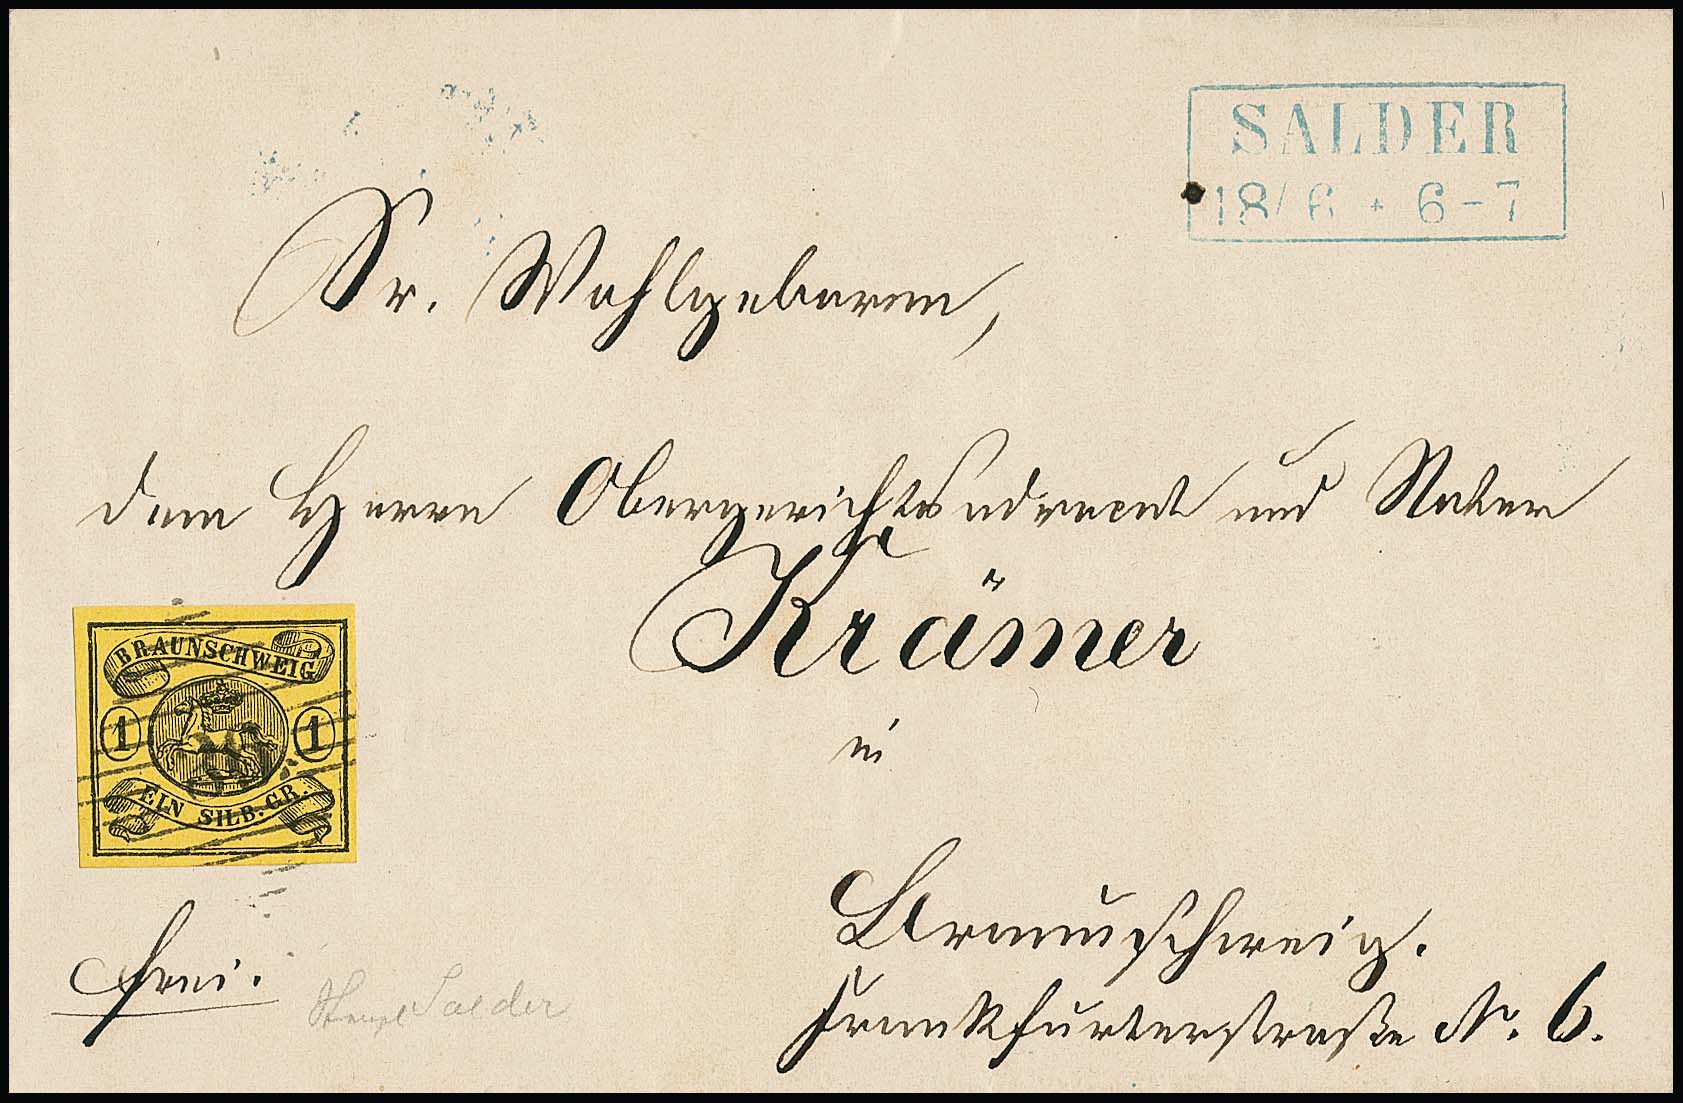 SALDER
18/6 * 6-7
Sr. Wohlgeboren,
dem Herrn Obergerichtsadvocat und Notar
Krämer
in
BRAUNSCHWEIG
1 1
EIN SILB. GR.
Braunschweig.
frei.
Stempel Salder
Frankfurterstraße No. 6.